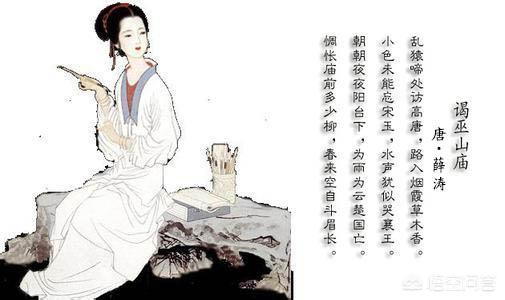 谒巫山庙
唐·薛涛
乱猿啼处访高唐，路入烟霞草木香。
小色未能忘宋玉，水声犹似哭襄王。
朝朝夜夜阳台下，为雨为云楚国亡。
惆怅庙前多少柳，春来空自斗眉长。
悟空问答